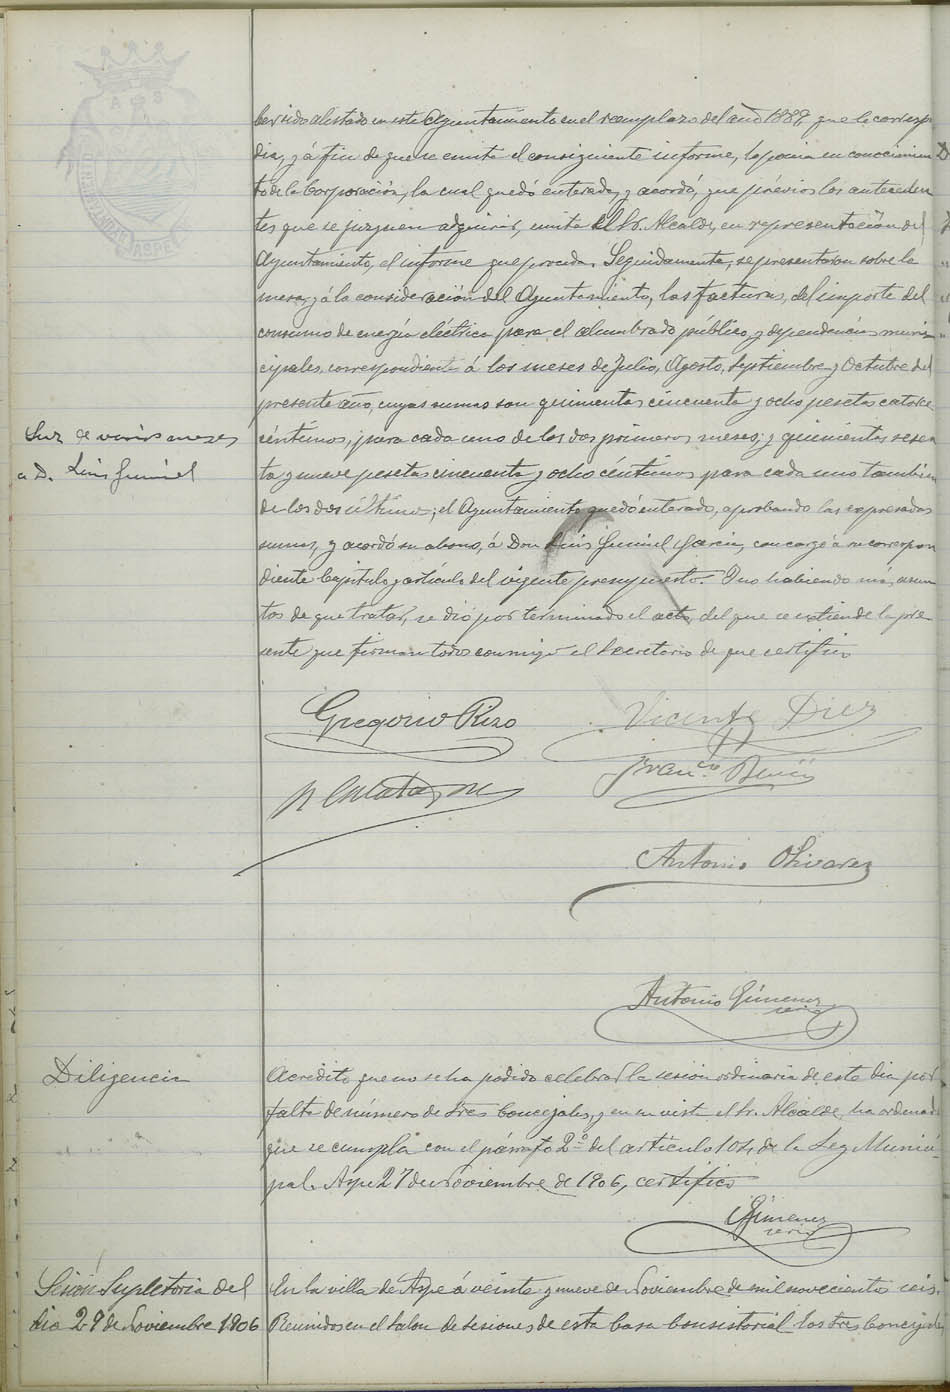 ber sido alistado en este Ayuntamiento en el reemplazo del año 1889, que le correspon
dia, y á fin de que se emita el consiguiente informe, lo ponia en conocimien
to de la Corporación, la cual quedó enterada, y acordó, que prévios los anteceden
tes que se juzguen adquirir, emita el Sr. Alcalde, en representación del
Ayuntamiento, el informe que proceda. Seguidamente, se presentaron sobre la
mesa, y á la consideración del Ayuntamiento, las facturas, del importe del
consumo de energía eléctrica para el alumbrado público, y dependencias muni
cipales, correspondiente á los meses de Julio, Agosto, Septiembre y Octubre del
presente año, cuyas sumas son quinientas cincuenta y ocho pesetas catorce
Luz de varios meses
a D. Luis Gumiel
céntimos, para cada uno de los dos primeros meses; y quinientas sesen
ta y nueve pesetas cincuenta y ocho céntimos para cada uno tambien
de los dos últimos; el Ayuntamiento quedó enterado, aprobando las expresadas
sumas, y acordó su abono, á Don Luis Gumiel Garcia, con cargo á su correspon
diente Capitulo y artículo del vigente presupuesto. Y no habiendo más asun
tos de que tratar, se dió por terminado el acto, del que se extiende la pre
sente que firman todos conmigo el Secretario de que certifico
Gregorio Rizo
Vicente Diez
Franco
Antonio Olivares
Antonio Gimenez
serio
Diligencia
Acredito que no se ha podido celebrar la sesion ordinaria de este dia por
falta de número de tres Concejales, y en su vista el Sr. Alcalde, ha ordenado
que se cumpla con el párrafo 2º del artículo 104, de la Ley Munici
pal. Aspe 27 de Noviembre de 1906, certifico
Gimenez
serio
Sesión Supletoria del
dia 29 de Noviembre 1906
En la villa de Aspe á veinte y nueve de Noviembre de mil novecientos seis.
Reunidos en el Salon de sesiones de esta Casa Consistorial los tres Concejales